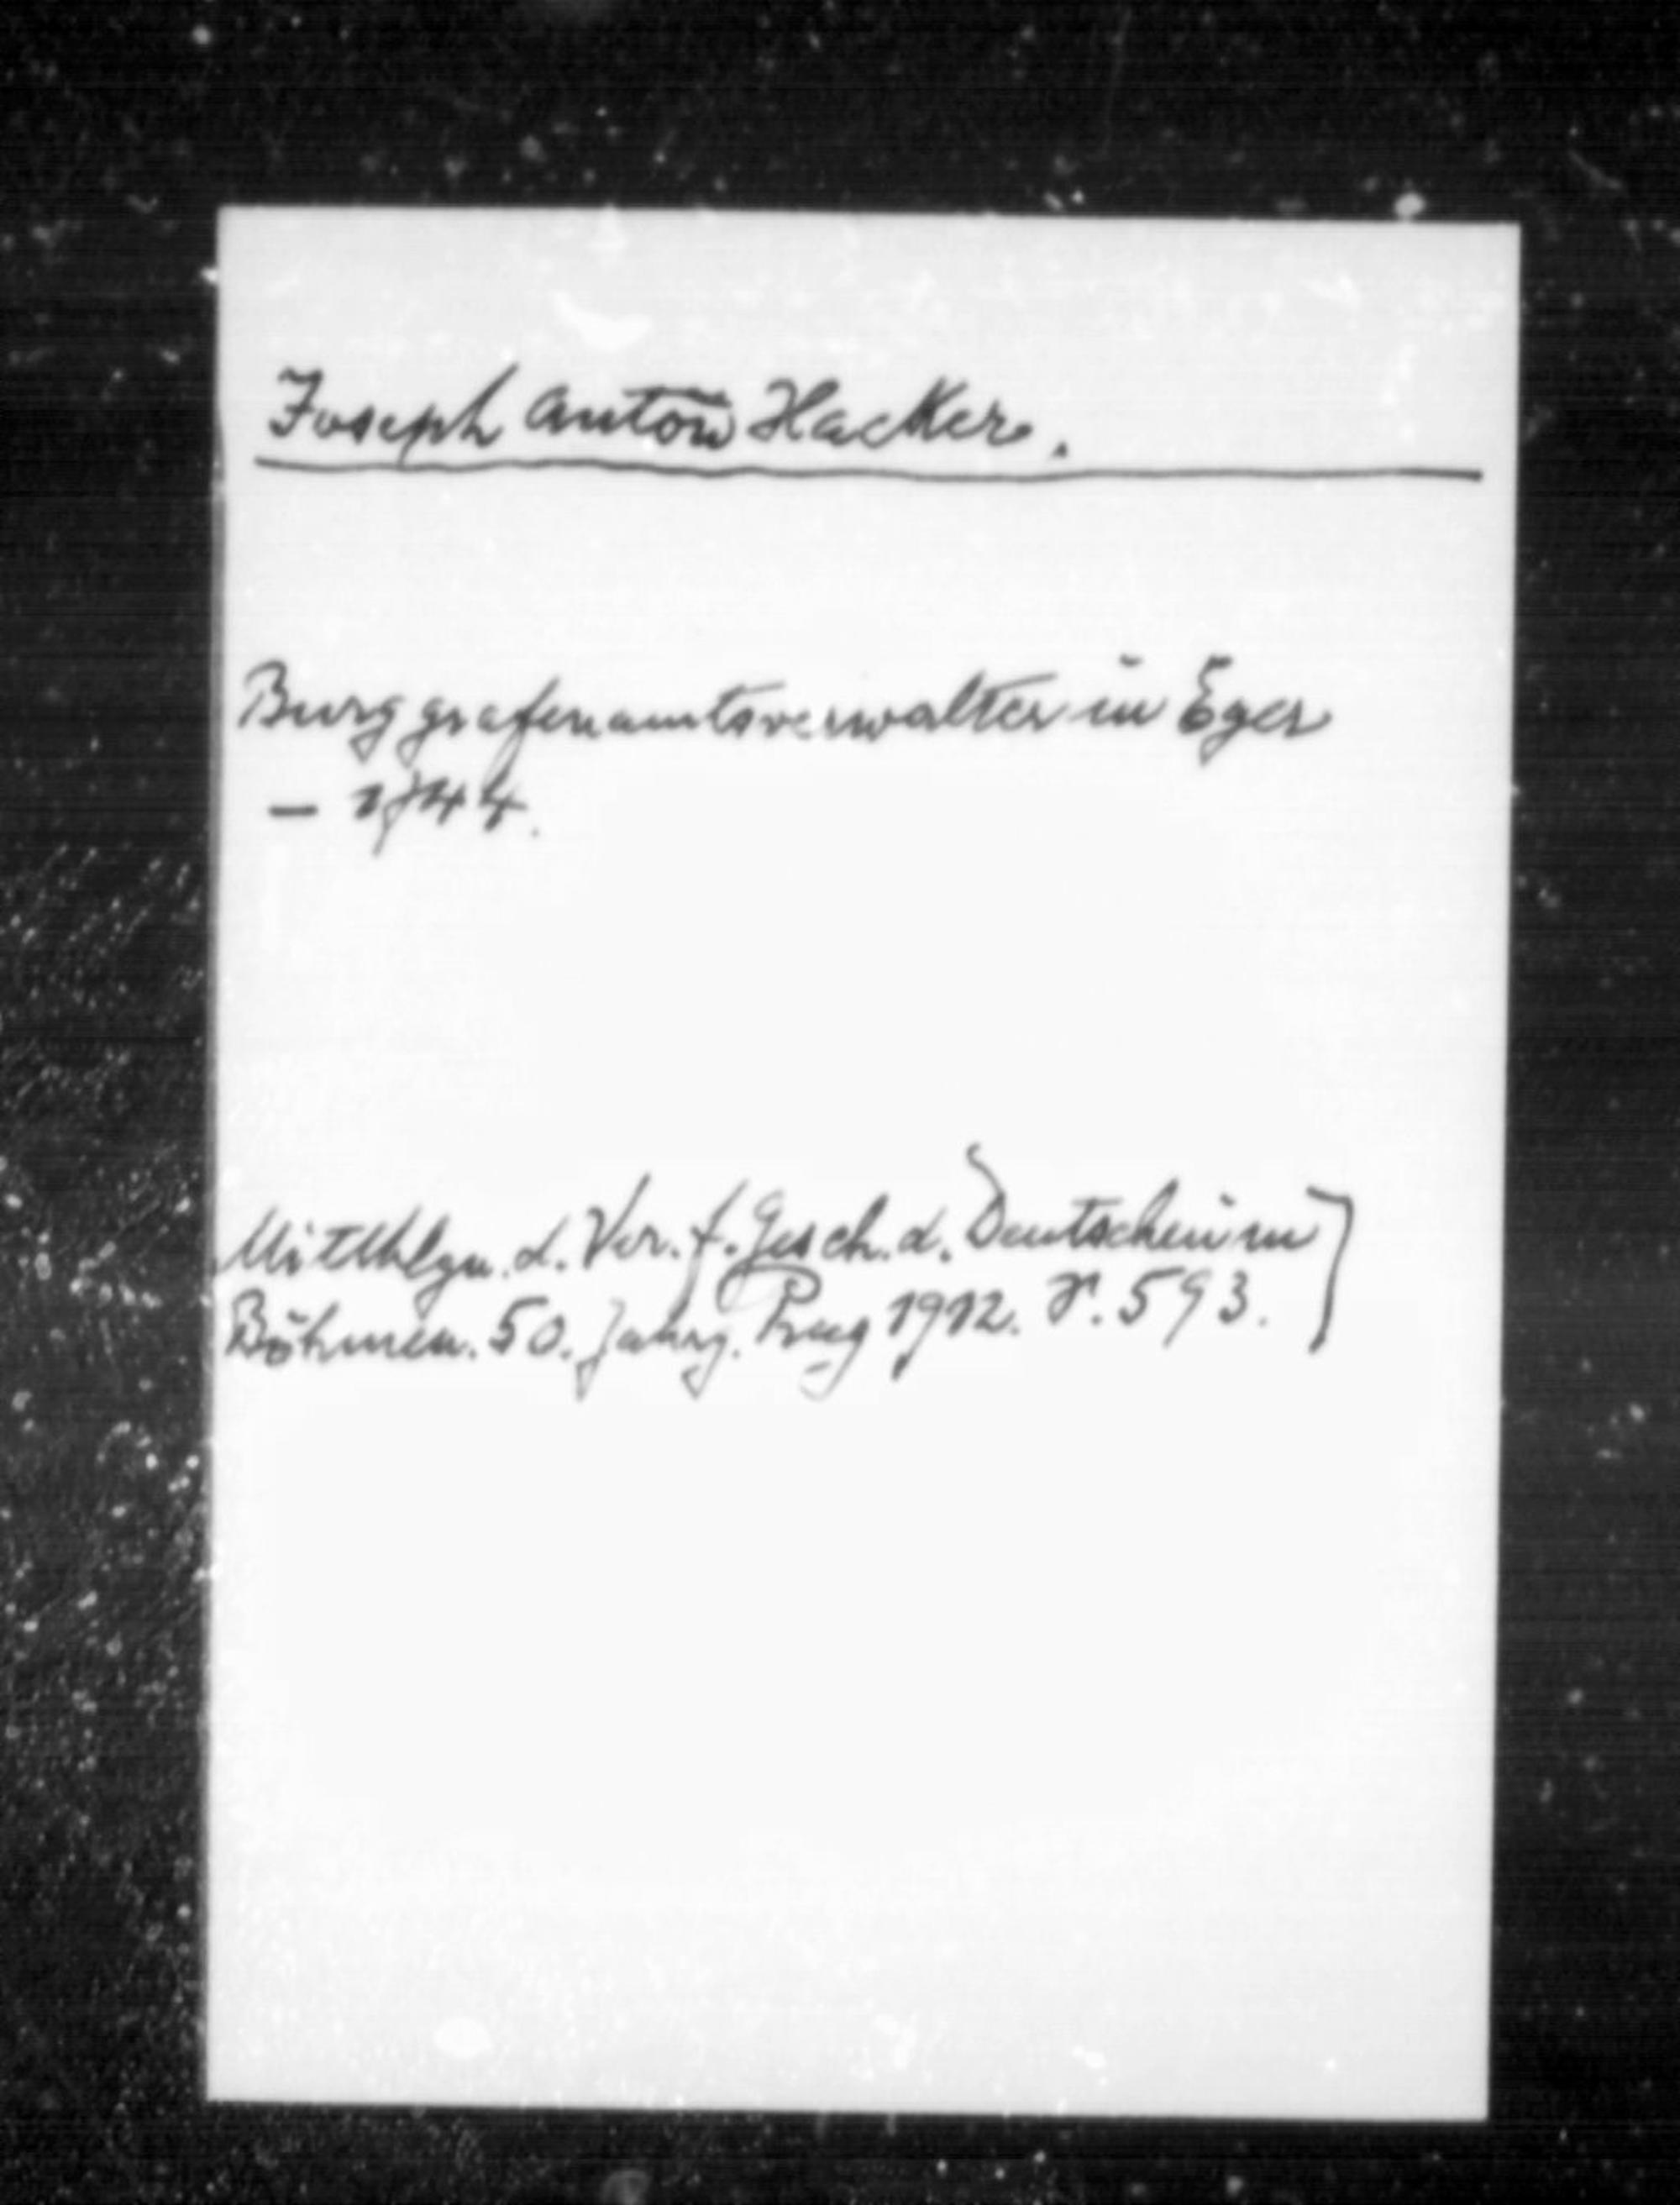 Joseph Anton Hacker.
Burggrafenamtsverwalter in Eger
– 1744.
Mitthlgn. d. Ver. f. Gesch. d. Deutschen in
Böhmen. 50. Jahrg. Prag 1912. S. 593.